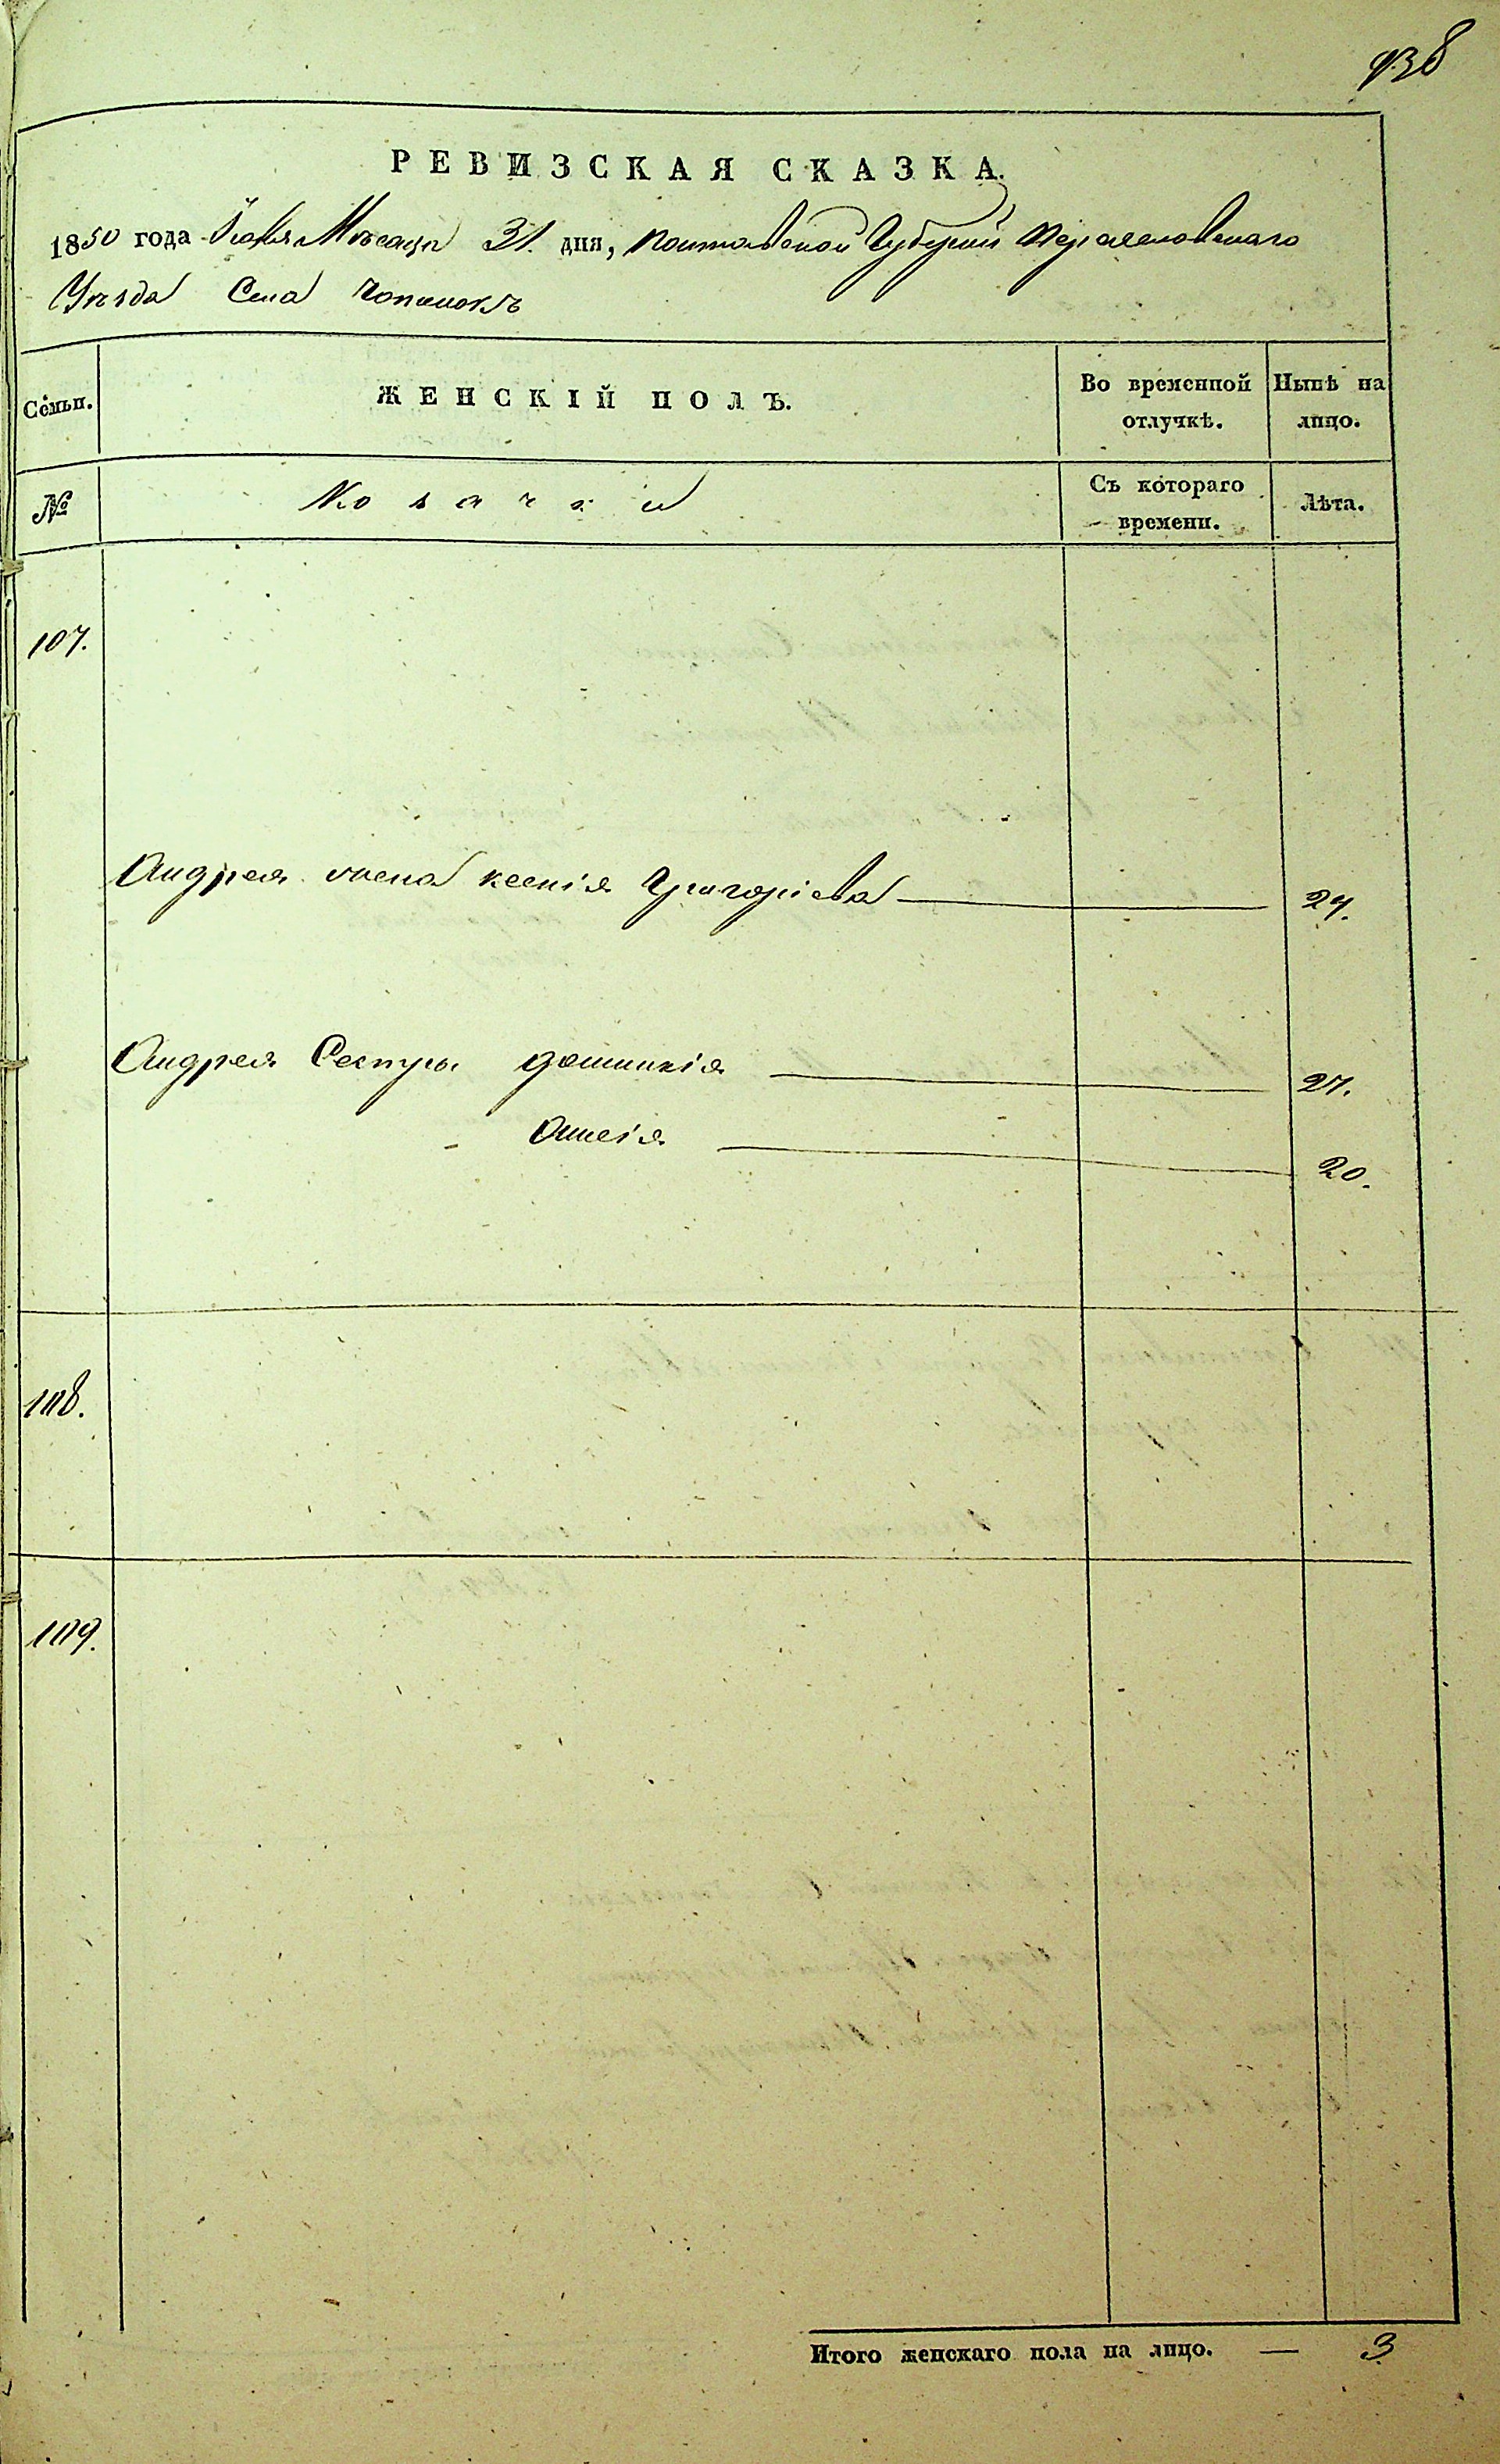 938
РЕВИЗСКАЯ СКАЗКА.
1850 года Іюля Мѣсяца 31 дня, Полтавской Губерніи Переяславскаго
Уѣзда Села
Семьи.
ЖЕНСКІЙ ПОЛЪ.
Во временной отлучкѣ.
Нынѣ на лицо.
№
Козачки
Съ котораго времени.
Лѣта.
107.
Андрея жена Ксенія Григоріева 27.
Андрея Сестры Домникія 27.
20.
108.
109.
Итого женскаго пола на лицо. — 3